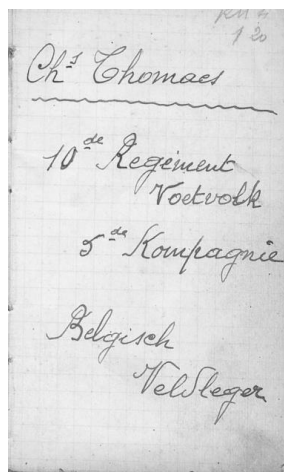 Chs Thomaes
10de Regiment
Voetvolk
5de Kompagnie
Belgisch
Veldleger